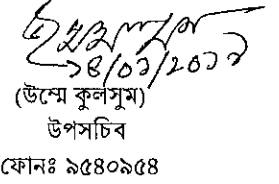 ১৪/০১/২০১৯
(উম্মে কুলসুম)
উপসচিব
ফোনঃ ৯৫৪০৯৫৪